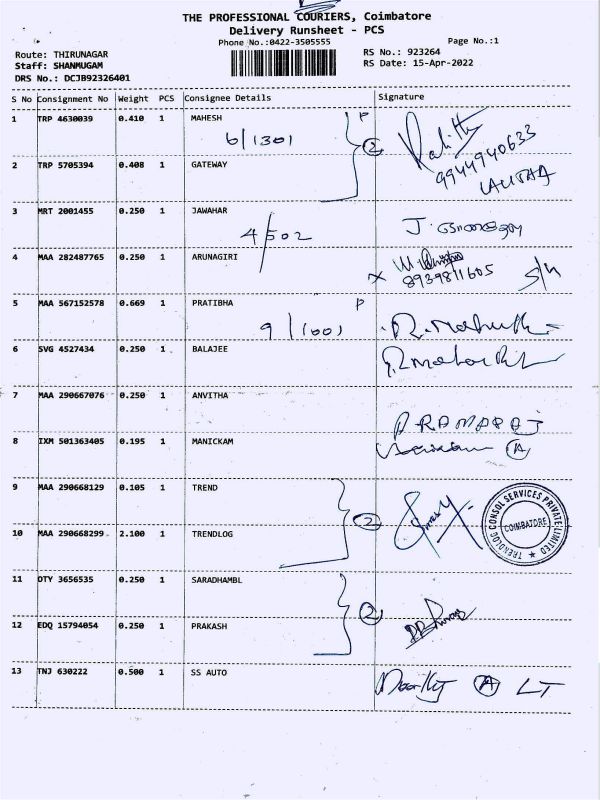 THE PROFESSIONAL COURIERS, Coimbatore
Delivery Runsheet - PCS
Phone No.:0422-3505555
Page No.:1
Route: THIRUNAGAR
RS No.: 923264
Staff: SHANMUGAM
RS Date: 15-Apr-2022
DRS No.: DCJB92326401
S No Consignment No Weight PCS Consignee Details Signature
1 TRP 4630039 0.410 1 MAHESH P
6/1301 2
9944940633
LALITHA
2 TRP 5705394 0.408 1 GATEWAY
3 MRT 2001455 0.250 1 JAWAHAR
4/502 J.
4 MAA 282487765 0.250 1 ARUNAGIRI
x 8939811605 S/N
5 MAA 567152578 0.669 1 PRATIBHA P
9/1001
6 SVG 4527434 0.250 1 BALAJEE
7 MAA 290667076 0.250 1 ANVITHA
A.RAMARAJ
8 IXM 501363405 0.195 1 MANICKAM A
9 MAA 290668129 0.105 1 TREND
2
TRENDLOG CONSOL SERVICES PRIVATE LIMITED
COIMBATORE
10 MAA 290668299 2.100 1 TRENDLOG
11 OTY 3656535 0.250 1 SARADHAMBL
2
12 EDQ 15794054 0.250 1 PRAKASH
13 TNJ 630222 0.500 1 SS AUTO
A LT